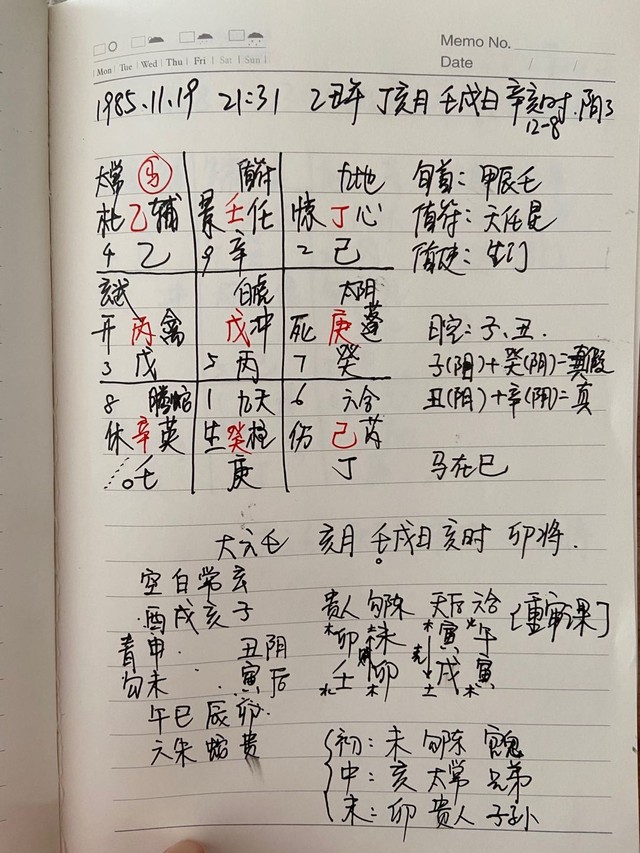 Memo No.
Mon Tue Wed Thu Fri Sat Sun
Date / /
1985.11.19 21:31 乙丑年 丁亥月 壬戌日 辛亥时.阴3
12-8
太常 马 值符 九地 旬首:甲辰壬
杜乙辅 景壬任 惊丁心 值符:天任星
4 乙 9 辛 2 己 值使:生门
玄武 白虎 太阴
开丙禽 戊冲 死庚蓬 日空:子、丑.
3 戊 5 丙 7 癸 子(阳)+癸(阴)=假
8 腾蛇 1 九天 6 六合 丑(阴)+辛(阴)=真
休辛英 生癸柱 伤己芮
壬 庚 丁 马在巳
大六壬 亥月 壬戌日 亥时 卯将.
空白常玄
酉戌亥子 贵人 勾陈 天后 六合 [重审课]
青申 丑阴 卯 未 寅 午
勾未 寅后 壬 卯 戌 寅
午巳辰卯
六朱蛇贵
初:未 勾陈 官鬼
中:亥 太常 兄弟
末:卯 贵人 子孙